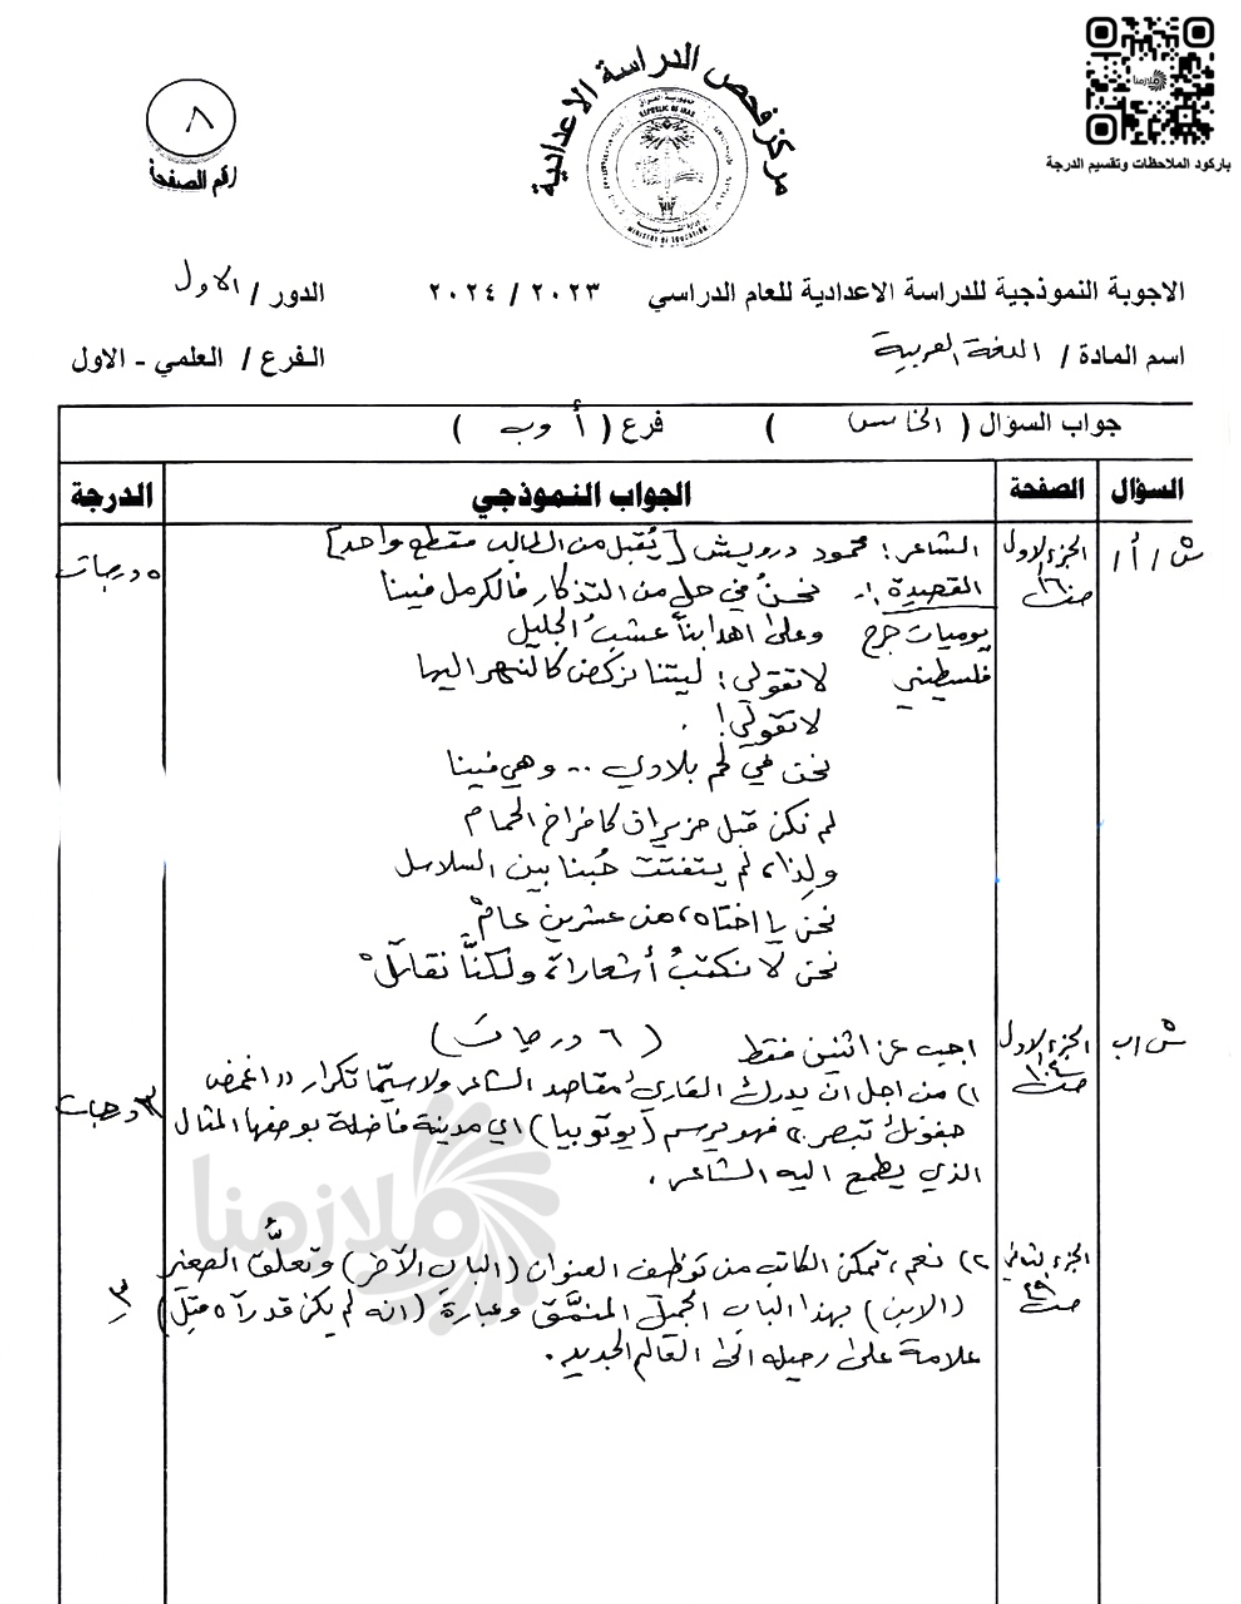 باركود الملاحظات وتقسيم الدرجة
مركز فحص الدراسة الاعدادية
جمهورية العراق
REPUBLIC OF IRAQ
MINISTRY OF EDUCATION
٨
رقم الصفحة
الاجوبة النموذجية للدراسة الاعدادية للعام الدراسي ٢٠٢٣ / ٢٠٢٤ الدور / الاول
اسم المادة / اللغة العربية الفرع / العلمي - الاول
جواب السؤال ( الخامس ) فرع ( أ وب )
السؤال الصفحة الجواب النموذجي الدرجة
س٥ / أ / الجزء الاول ص١٦٠ الشاعر : محمود درويش [ يُقبل من الطالب مقطع واحد ] ٥ درجات
القصيدة :- نحنُ في حلٍ من التذكار فالكرمل فينا
يوميات جرح وعلى اهدابنا عشبُ الجليل
فلسطيني لا تقولي : ليتنا نركض كالنهر اليها
لا تقولي !
نحن في لحم بلادي .. وهي فينا
لم نكن قبل حزيران كافراخ الحمام
ولذا، لم يتفتت حُبنا بين السلاسل
نحن يا اختاه، من عشرين عامْ
نحن لا نكتبُ أشعاراً، ولكنَّا نقاتلْ
س٥ / ب الجزء الاول اجب عن اثنين فقط ( ٦ درجات )
ص١٠٤ ١) من اجل ان يدرك القارئ مقاصد الشاعر ولا سيّما تكرار (( اغمض ٣ درجات
جفونك تبصر )) فهو يرسم (يوتوبيا) اي مدينة فاضلة بوصفها المثال
الذي يطمع اليه الشاعر .
ملازمنا
الجزء الثاني ص٢٩ ٢) نعم ، تمكن الكاتب من توظيف العنوان (الباب الآخر) وتعلُّق الصغير
(الابن) بهذا الباب الجميل المنمَّق وعبارة (انه لم يكن قد رآه قبل) ٣
علامة على رحيله الى العالم الجديد .